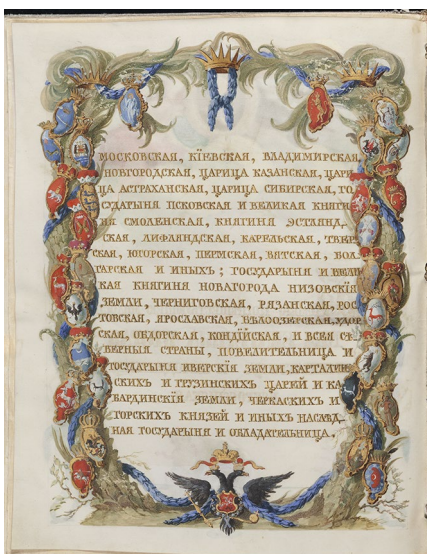 МОСКОВСКАЯ, КІЕВСКАЯ, ВЛАДИМИРСКАЯ,
НОВГОРОДСКАЯ, ЦАРИЦА КАЗАНСКАЯ, ЦАРИ
ЦА АСТРАХАНСКАЯ, ЦАРИЦА СИБИРСКАЯ, ГО
СУДАРЫНЯ ПСКОВСКАЯ И ВЕЛИКАЯ КНЯГИ
НЯ СМОЛЕНСКАЯ, КНЯГИНЯ ЭСТЛЯНД-
СКАЯ, ЛИФЛЯНДСКАЯ, КАРЕЛЬСКАЯ, ТВЕР
СКАЯ, ЮГОРСКАЯ, ПЕРМСКАЯ, ВЯТСКАЯ, БОЛ
ГАРСКАЯ И ИНЫХЪ; ГОСУДАРЫНЯ И ВЕЛИ
КАЯ КНЯГИНЯ НОВАГОРОДА НИЗОВСКІЯ
ЗЕМЛИ, ЧЕРНИГОВСКАЯ, РЯЗАНСКАЯ, РОС
ТОВСКАЯ, ЯРОСЛАВСКАЯ, БѢЛООЗЕРСКАЯ, УДОР
СКАЯ, ОБДОРСКАЯ, КОНДІЙСКАЯ, И ВСЕЯ СѢ
ВЕРНЫЯ СТРАНЫ, ПОВЕЛИТЕЛЬНИЦА И
ГОСУДАРЫНЯ ИВЕРСКІЯ ЗЕМЛИ, КАРТАЛИН
СКИХЪ И ГРУЗИНСКИХЪ ЦАРЕЙ И КА
БАРДИНСКІЯ ЗЕМЛИ, ЧЕРКАСКИХЪ И
ГОРСКИХЪ КНЯЗЕЙ И ИНЫХЪ НАСЛѢД-
НАЯ ГОСУДАРЫНЯ И ОБЛАДАТЕЛЬНИЦА.